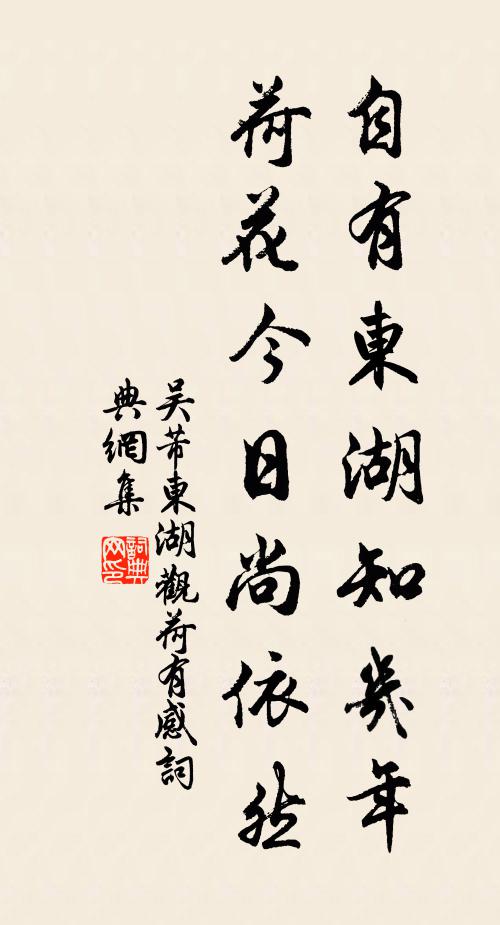 自有東湖知幾年
荷花今日尚依然
吴芾東湖觀荷有感詞
典網集
詞典
网印